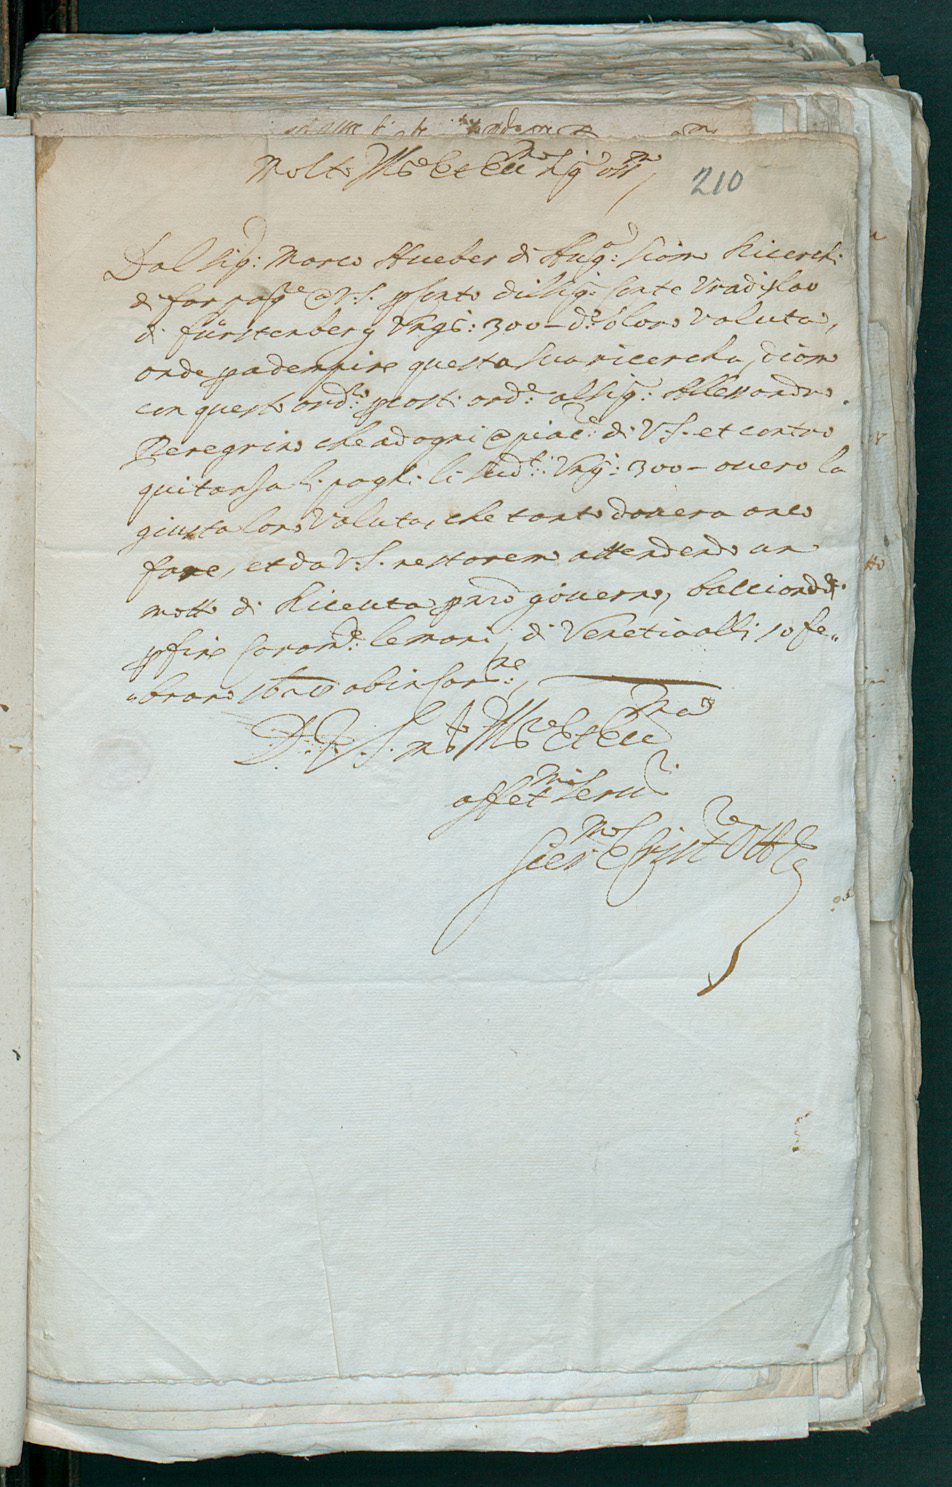 Molto Ill.re et Ecc.mo Sig.r oss.mo
210
Dal Sig.: Marco Hueber di Aug.a: siamo Ricerch.i
di far pag.e a V.S. p conto del Sig.r Conte Vradislao
di fürstenberg Vng.i: 300 – d.o loro valuta,
onde p adempire questa sua ricercha, diamo
con questo ord.e p costi ord.e al Sig.: Allessandro
Peregrini che ad ogni piac.e: di V.S. et contro
quitansa li paghi li sud.ti: Vng.i: 300 – overo la
giusta loro valuta, che tanto dovera anco
fare, et da V.S. restaremo attendendo un
motto di Riceuta p governo, basciandoli
p fine le mani, di Venetia alli 10 fe„
„braro
D. V.S. m.to Ill.re et Ecc.ma
affet.mi Ser.ri
Ott